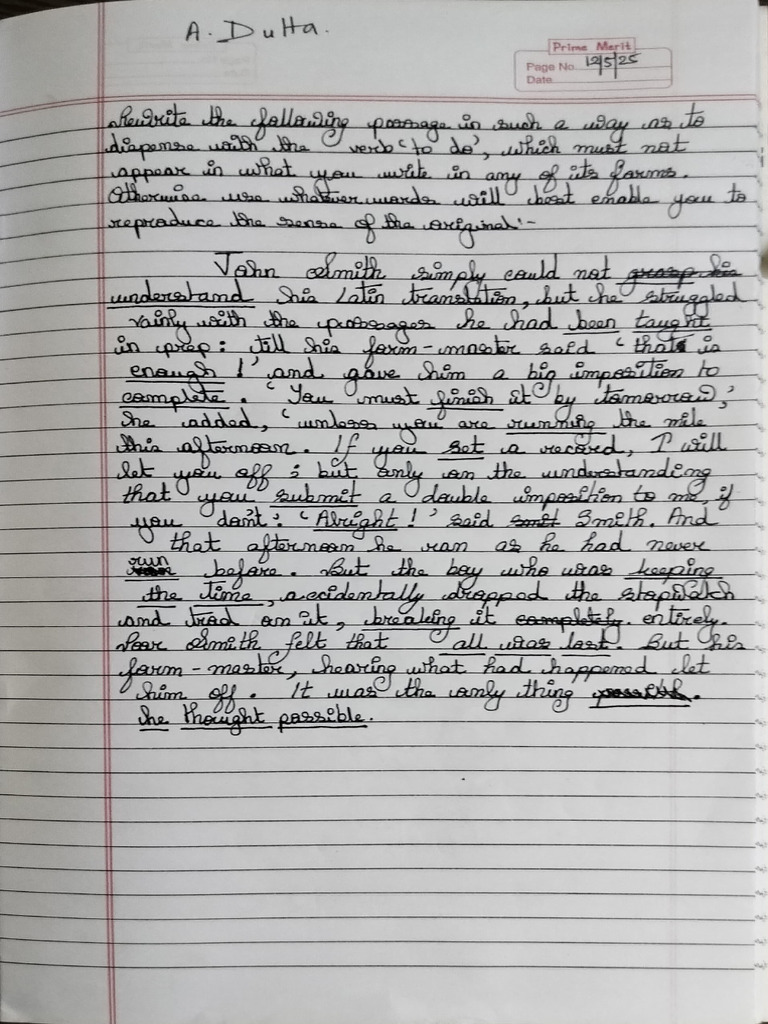 A. Dutta.
Prime Merit
Page No. 12/5/25
Date
Rewrite the following passage in such a way as to
dispense with the verb 'to do', which must not
appear in what you write in any of its forms.
Otherwise use whatever words will best enable you to
reproduce the sense of the original:-
John Smith simply could not grasp his
understand his Latin translation, but he struggled
vainly with the passages he had been taught
in prep: till his form-master said 'that is
enough!' and gave him a big imposition to
complete. 'You must finish it by tomorrow,'
he added, 'unless you are running the mile
this afternoon. If you set a record, I will
let you off; but only on the understanding
that you submit a double imposition to me, if
you don't.' 'Alright!' said Smith. And
that afternoon he ran as he had never
run before. But the boy who was keeping
the time, accidentally dropped the stopwatch
and trod on it, breaking it completely. entirely.
Poor Smith felt that all was lost. But his
form-master, hearing what had happened let
him off. It was the only thing
he thought possible.